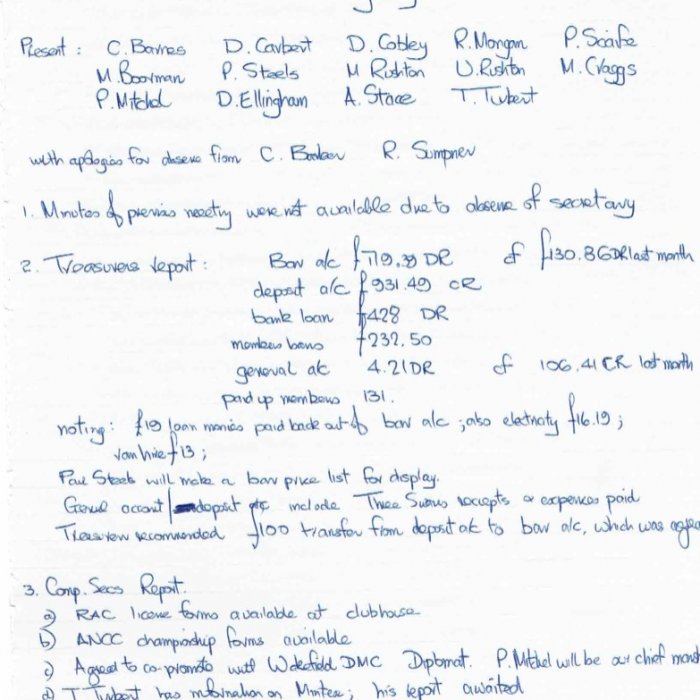 Present : C. Barnes D. Carbert D. Cobley R. Morgan P. Scaife
M. Boorman P. Steels M Rishton U. Rishton M. Craggs
P. Mitchel D. Ellingham A. Stace T. Turbert
with apologies for absence from C. R. Sumpner
1. Minutes of previous meeting were not available due to absence of secretary
2. Treasurers report : Bar a/c £719.39 DR cf £130.86DR last month
deposit a/c £931.49 CR
bank loan £428 DR
members loans £232.50
general a/c 4.21DR cf 106.41 CR last month
paid up members 131.
noting: £19 loan monies paid back out of bar a/c ; also electricity £16.19 ;
van hire £13 ;
Paul Steels will make a bar price list for display.
General account deposit include Three Swans receipts or expenses paid
Treasurer recommended £100 transfer from deposit ac to bar a/c, which was agree
3. Comp. Secs Report.
a) RAC license forms available at clubhouse
b) ANCC championship forms available
c) Agreed to co-promote with Wakefield DMC Diplomat. P. Mitchel will be our chief
d) T Turbert has information on Mintex; his report awaited